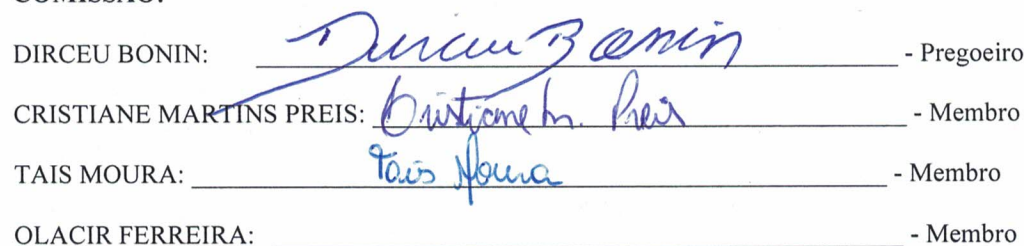 COMISSÃO:
DIRCEU BONIN: Dirceu Bonin - Pregoeiro
CRISTIANE MARTINS PREIS: Cristiane M. Preis - Membro
TAIS MOURA: Tais Moura - Membro
OLACIR FERREIRA: - Membro